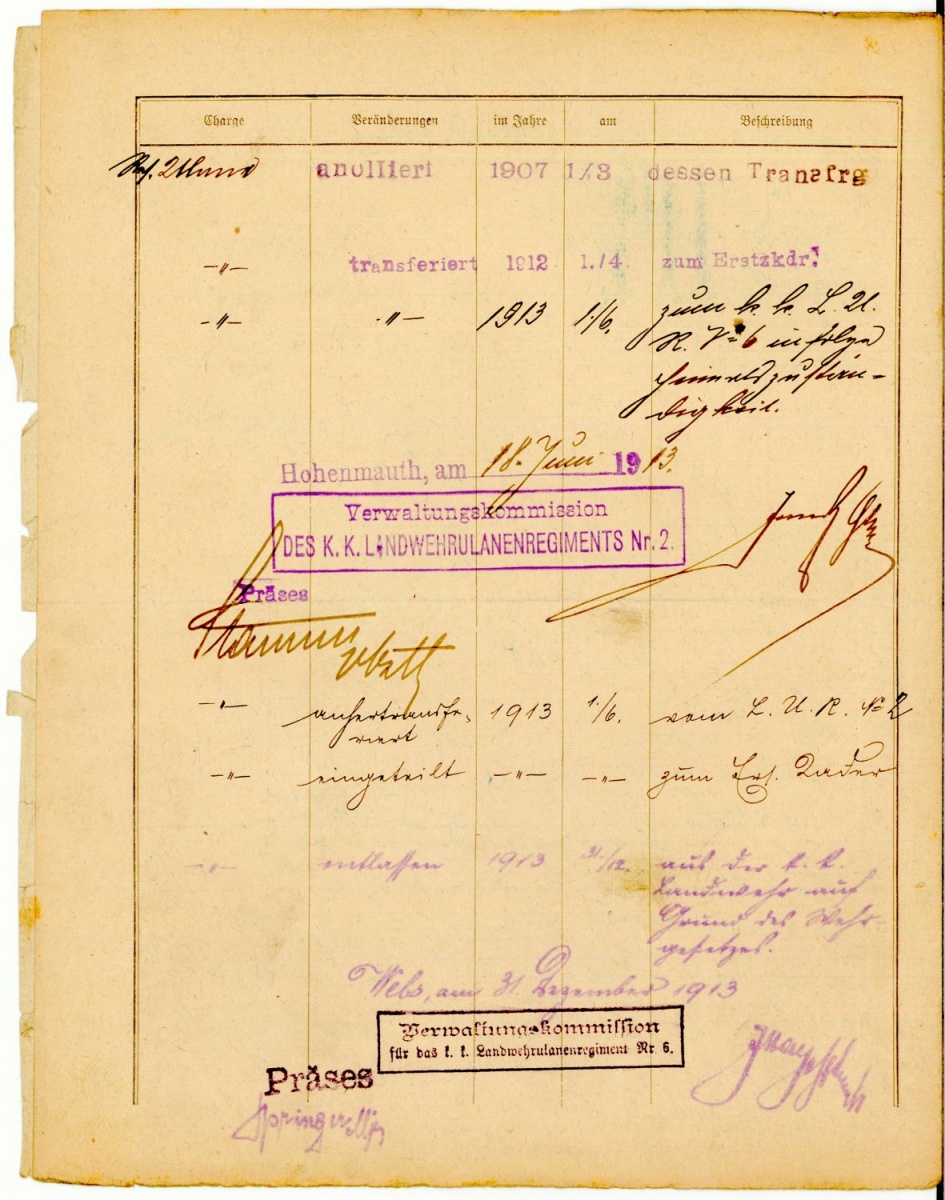 Charge Veränderungen im Jahre am Beschreibung
anolliert 1907 1/3 dessen Transfrg
–"– transferiert 1912 1./4. zum Erstzkdr.
–"– –"– 1913 1./6. zum k. k. L. U.
R. No 6 infolge
Heimatszustän-
digkeit.
Hohenmauth, am 18. Juni 1913.
Verwaltungskommission
DES K. K. LANDWEHRULANENREGIMENTS Nr. 2.
Präses
–"– anhertransfe- 1913 1./6. vom L. U. R. No 2
riert
–"– eingeteilt –"– –"– zum Ers. Kader
–"– entlassen 1913 31./12. aus der k. k.
Landwehr auf
Grund des Wehr-
gesetzes.
Wels, am 31. Dezember 1913
Verwaltungskommission
für das k. k. Landwehrulanenregiment Nr. 6.
Präses
Springer Mjr